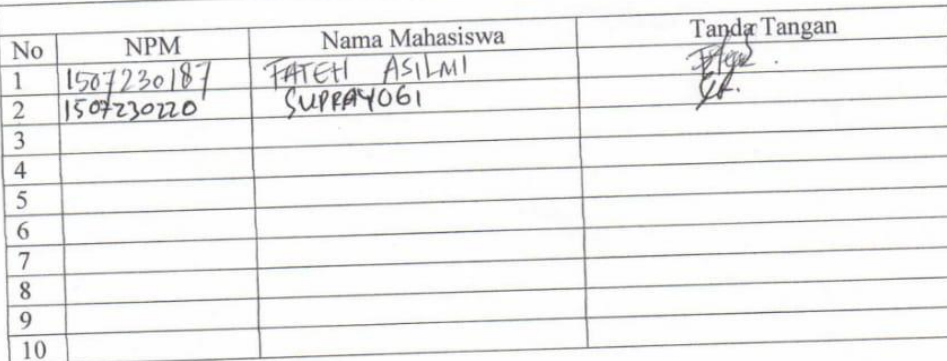 No NPM Nama Mahasiswa Tanda Tangan
1 1507230187 FATEH ASILMI
2 1507230220 SUPRAYOGI
3
4
5
6
7
8
9
10